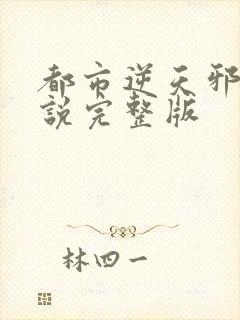 都市逆天邪
說完整版
林四一